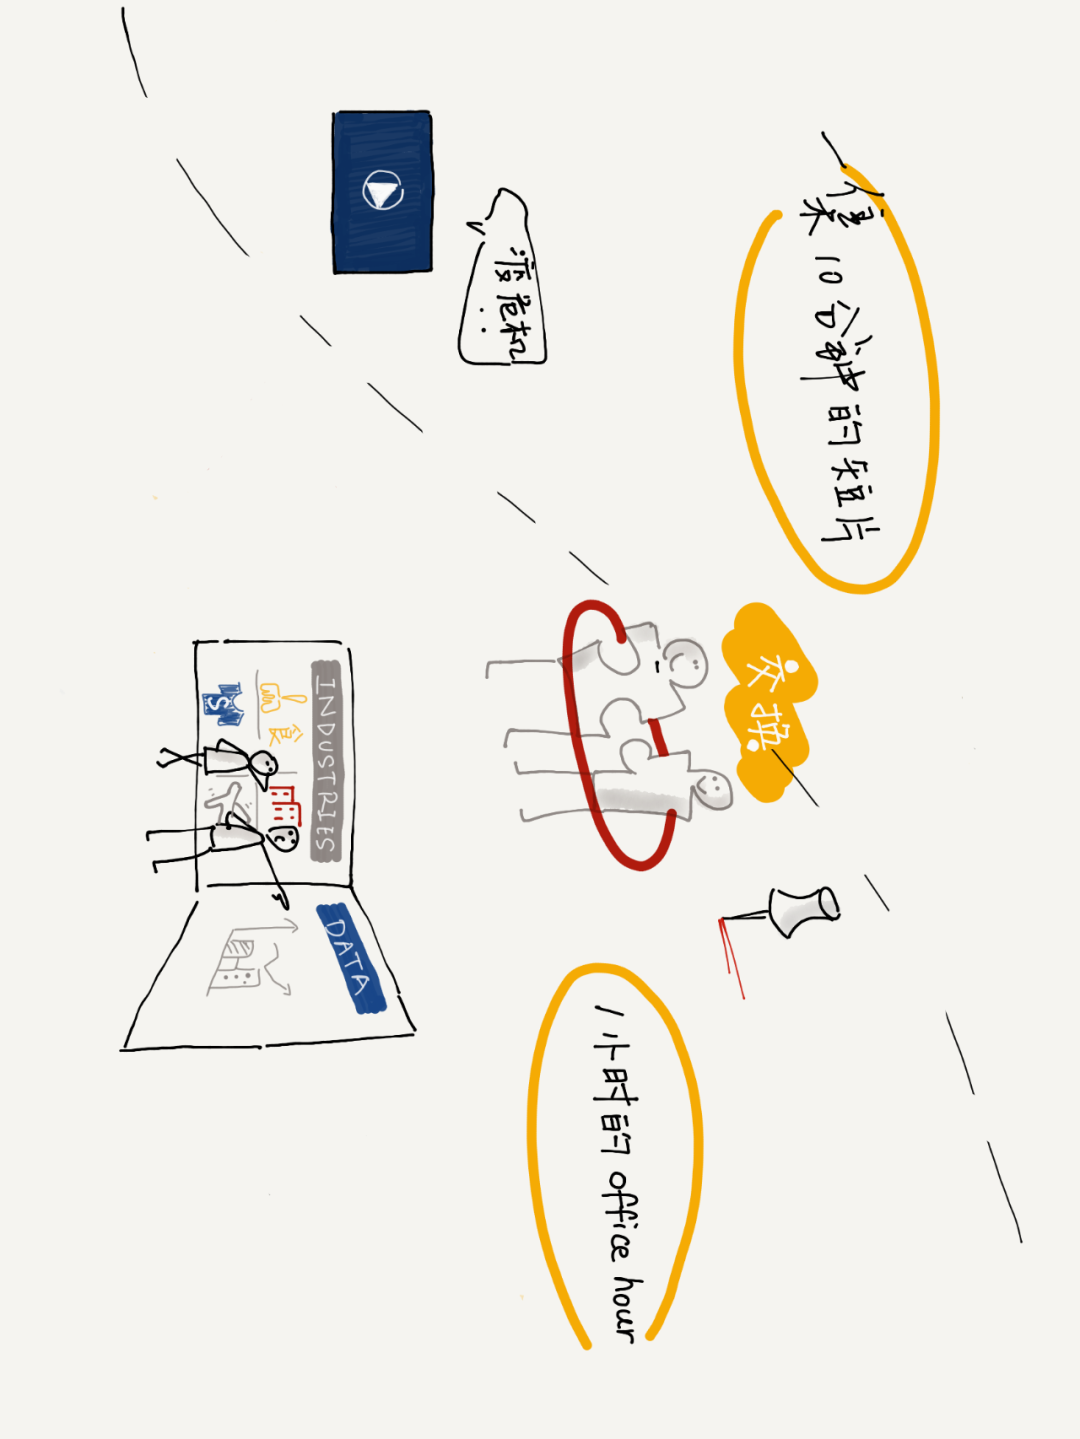 一集10分钟的短片
交换
渡危机
..
1小时的 office hour
INDUSTRIES
食
S
DATA